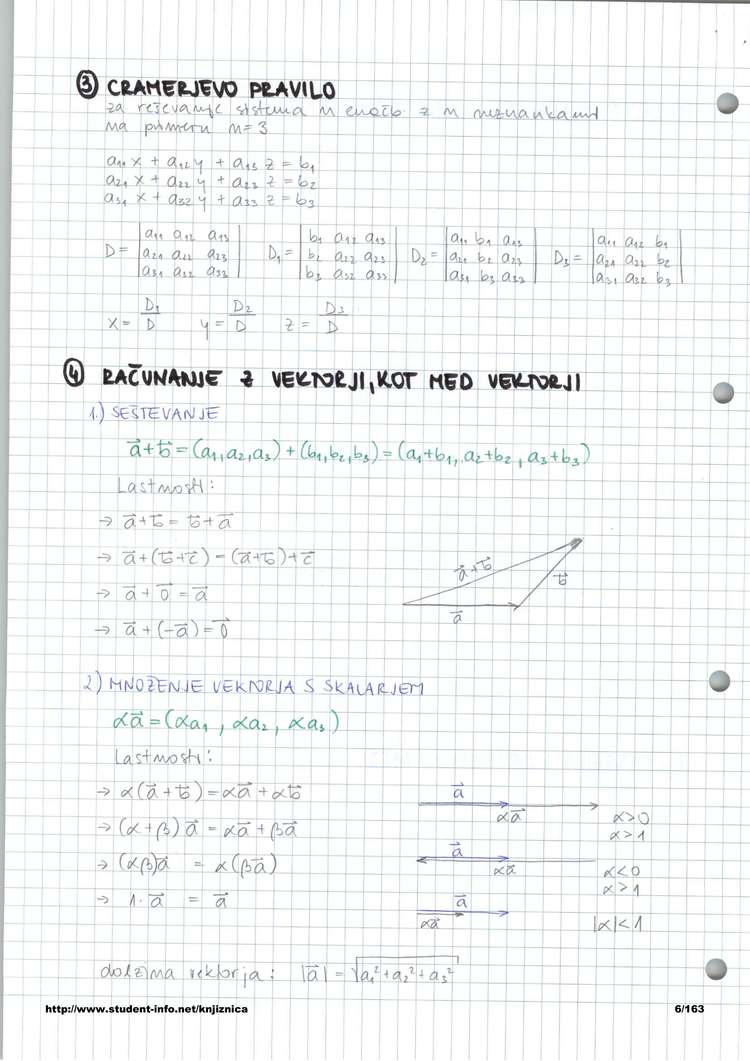 ③ CRAMERJEVO PRAVILO
za reševanje sistema n enačb z n neznankami
na primeru n=3
a₁₁ x + a₁₂ y + a₁₃ z = b₁
a₂₁ x + a₂₂ y + a₂₃ z = b₂
a₃₁ x + a₃₂ y + a₃₃ z = b₃
D = |a₁₁ a₁₂ a₁₃| D₁ = |b₁ a₁₂ a₁₃| D₂ = |a₁₁ b₁ a₁₃| D₃ = |a₁₁ a₁₂ b₁|
|a₂₁ a₂₂ a₂₃| |b₂ a₂₂ a₂₃| |a₂₁ b₂ a₂₃| |a₂₁ a₂₂ b₂|
|a₃₁ a₃₂ a₃₃| |b₃ a₃₂ a₃₃| |a₃₁ b₃ a₃₃| |a₃₁ a₃₂ b₃|
x = D₁/D y = D₂/D z = D₃/D
④ RAČUNANJE Z VEKTORJI, KOT MED VEKTORJI
1.) SEŠTEVANJE
a⃗+b⃗ = (a₁,a₂,a₃) + (b₁,b₂,b₃) = (a₁+b₁, a₂+b₂, a₃+b₃)
Lastnosti:
→ a⃗+b⃗ = b⃗+a⃗
→ a⃗+(b⃗+c⃗) = (a⃗+b⃗)+c⃗
→ a⃗+0⃗ = a⃗
→ a⃗+(-a⃗) = 0⃗
a⃗+b⃗
b⃗
a⃗
2) MNOŽENJE VEKTORJA S SKALARJEM
αa⃗ = (αa₁, αa₂, αa₃)
Lastnosti:
→ α(a⃗+b⃗) = αa⃗+αb⃗
→ (α+β)a⃗ = αa⃗+βa⃗
→ (αβ)a⃗ = α(βa⃗)
→ 1·a⃗ = a⃗
a⃗
αa⃗
α>0
α>1
a⃗
αa⃗
α<0
α>1
a⃗
αa⃗
|α|<1
dolžina vektorja: |a⃗| = √(a₁²+a₂²+a₃²)
http://www.student-info.net/knjiznica 6/163